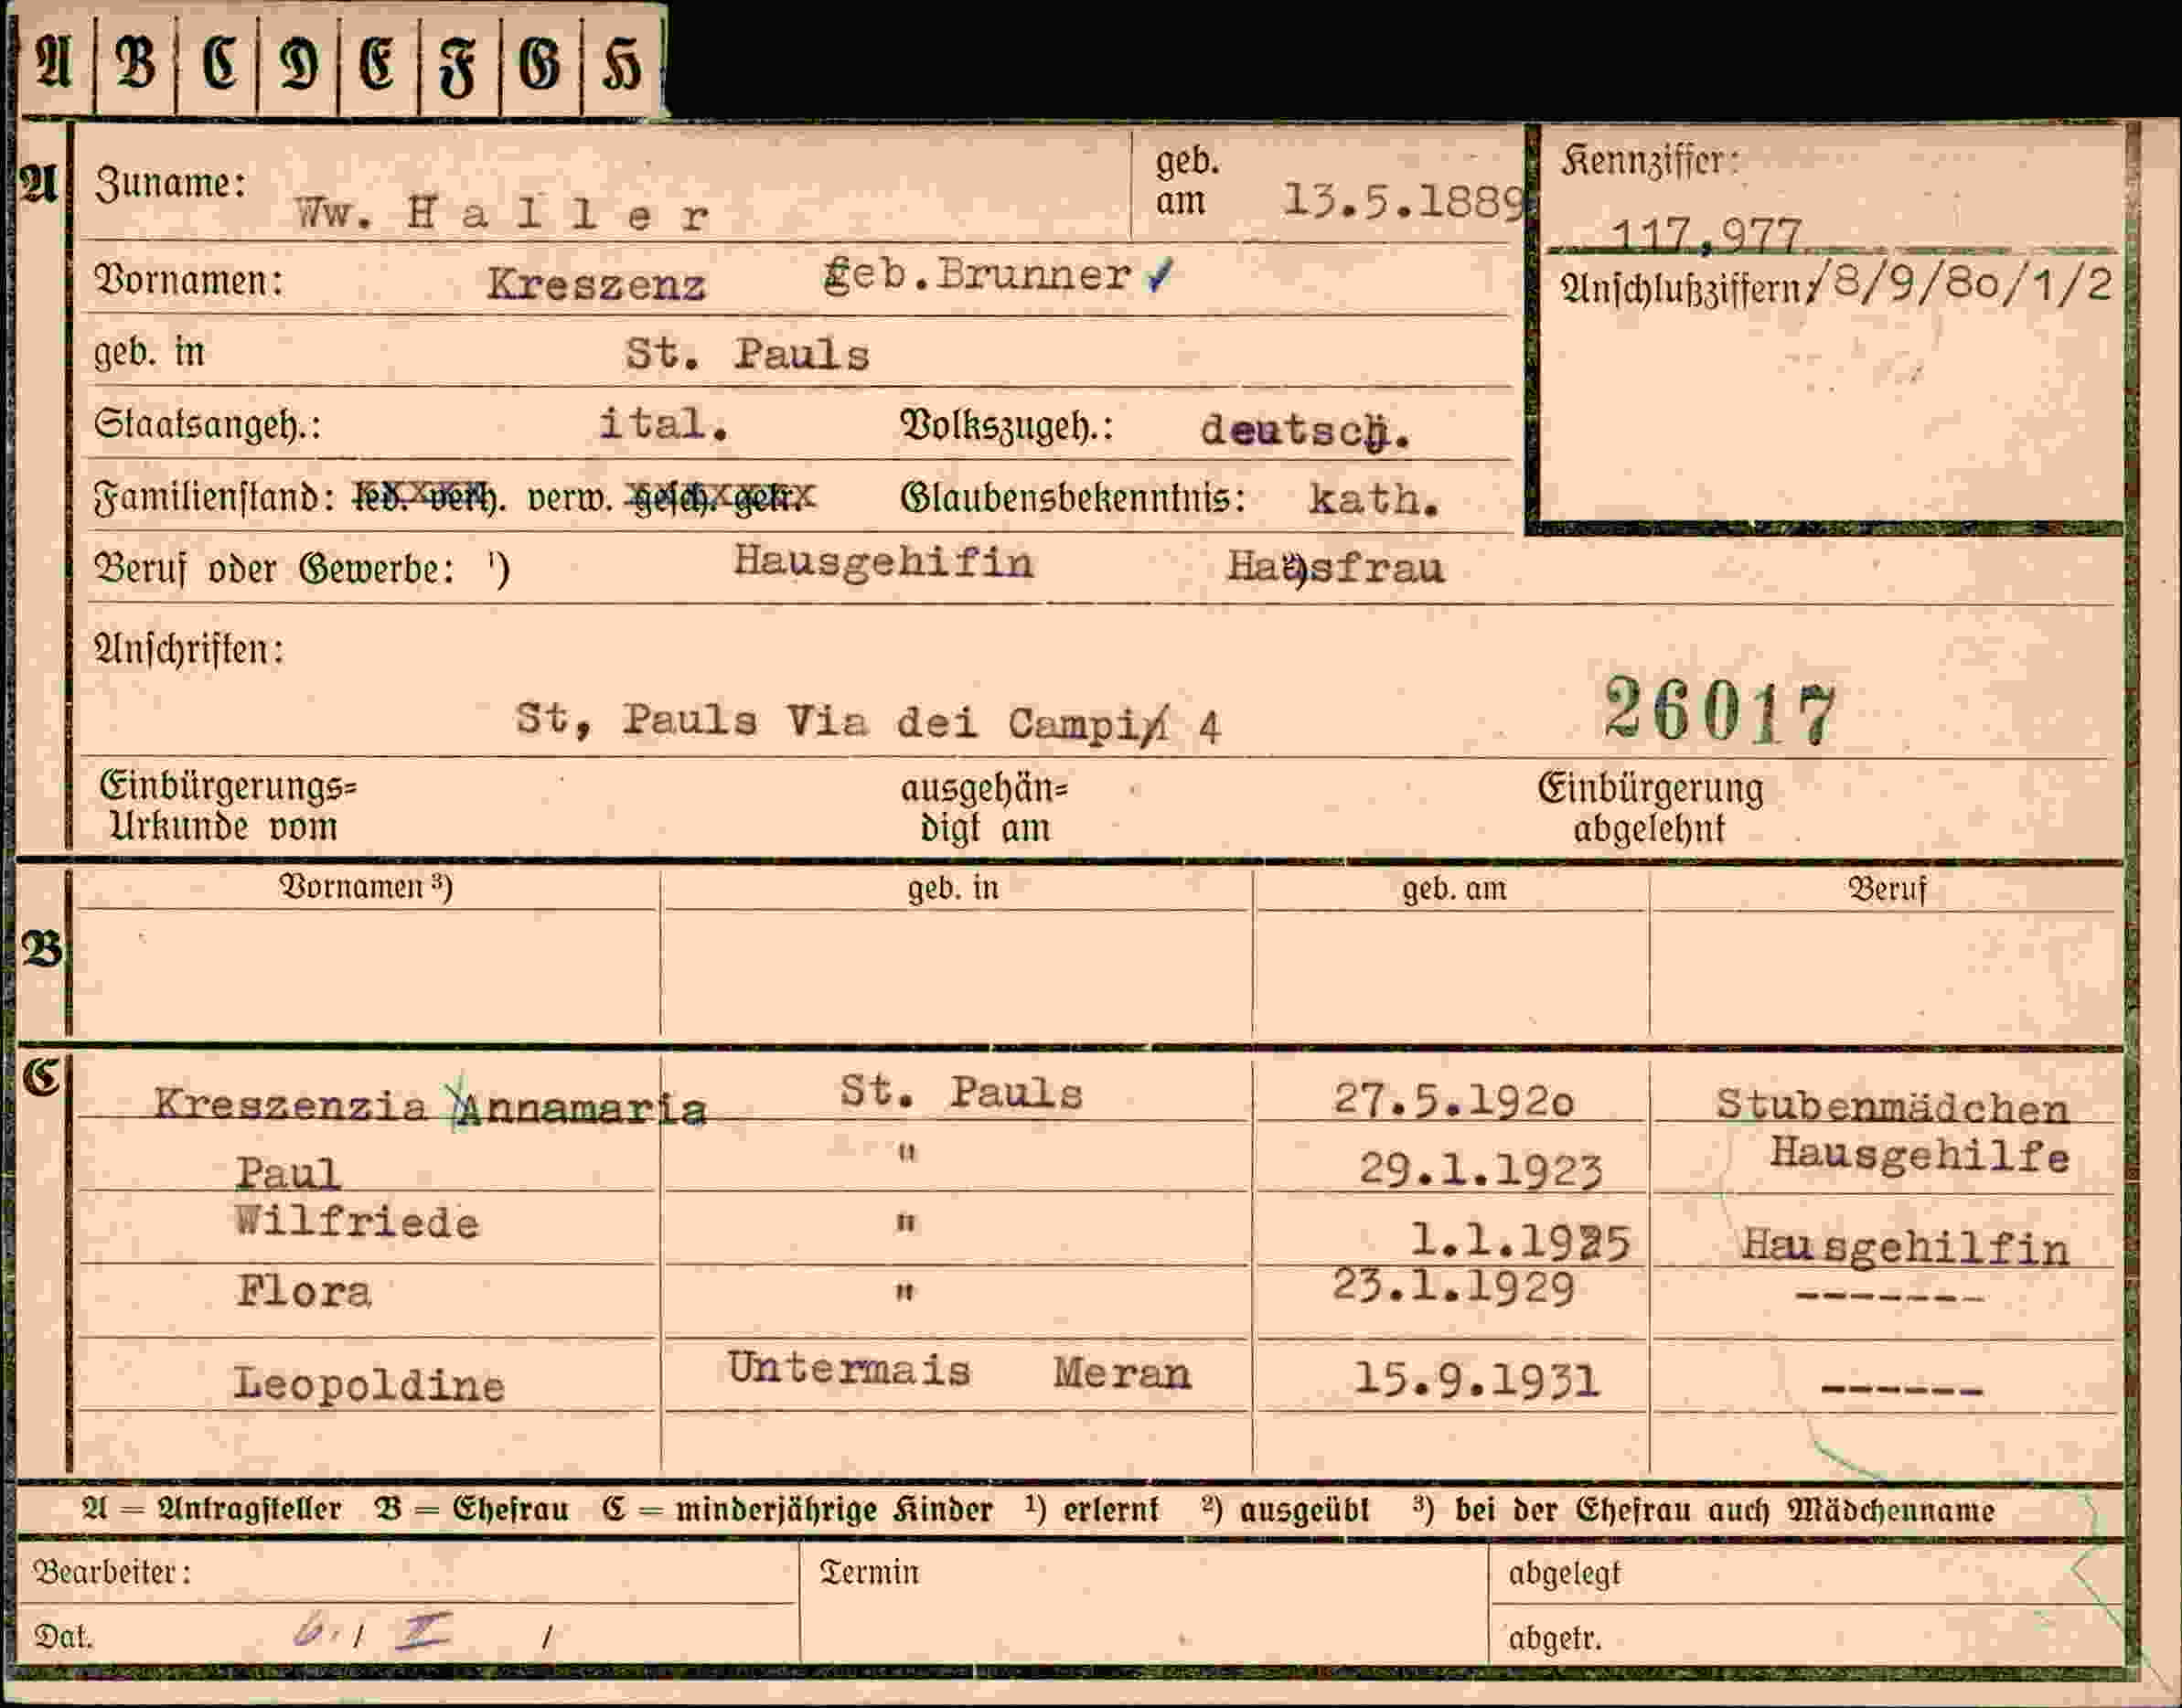 A B C D E F G H
A
Zuname: Ww. H a l l e r geb. am 13.5.1889
Kennziffer: 117,977
Vornamen: Kreszenz geb.Brunner
Anschlußziffern:/8/9/80/1/2
geb. in St. Pauls
Staatsangeh.: ital. Volkszugeh.: deutsch.
Familienstand: led. verh. verw. gesch. getr. Glaubensbekenntnis: kath.
Beruf oder Gewerbe: ¹) Hausgehifin Hausfrau
Anschriften:
26017
St, Pauls Via dei Campi 4
Einbürgerungs= Urkunde vom ausgehän= digt am Einbürgerung abgelehnt
B
Vornamen ³) geb. in geb. am Beruf
C
Kreszenzia Annamaria St. Pauls 27.5.1920 Stubenmädchen
Paul " 29.1.1923 Hausgehilfe
Wilfriede " 1.1.1925 Hausgehilfin
Flora " 23.1.1929 -------
Leopoldine Untermais Meran 15.9.1931 ------
A = Antragsteller B = Ehefrau C = minderjährige Kinder ¹) erlernt ²) ausgeübt ³) bei der Ehefrau auch Mädchenname
Bearbeiter: Termin abgelegt
Dat. abgetr.